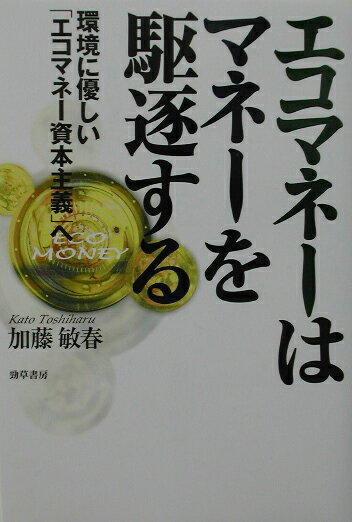 エコマネーは
マネーを
駆逐する
環境に優しい
「エコマネー資本主義」へ
ECO
MONEY
Kato Toshiharu
加藤 敏春
勁草書房